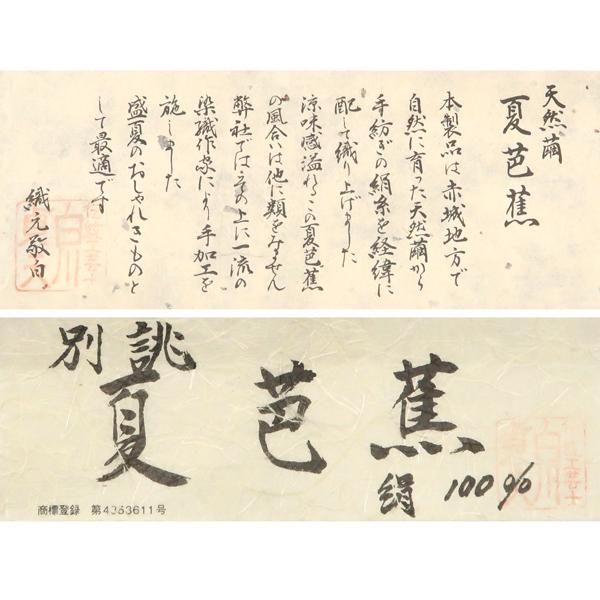 天然繭
夏芭蕉
本製品は赤城地方で
自然に育った天然繭から
手紡ぎの絹糸を経緯に
配して織り上げました
涼味感溢れるこの夏芭蕉
の風合いは他に類をみません
弊社ではその上に一流の
染織作家により手加工を
施しました
盛夏のおしゃれきものと
して最適です
織元敬白
別誂
夏芭蕉
絹 100%
商標登録 第4363611号